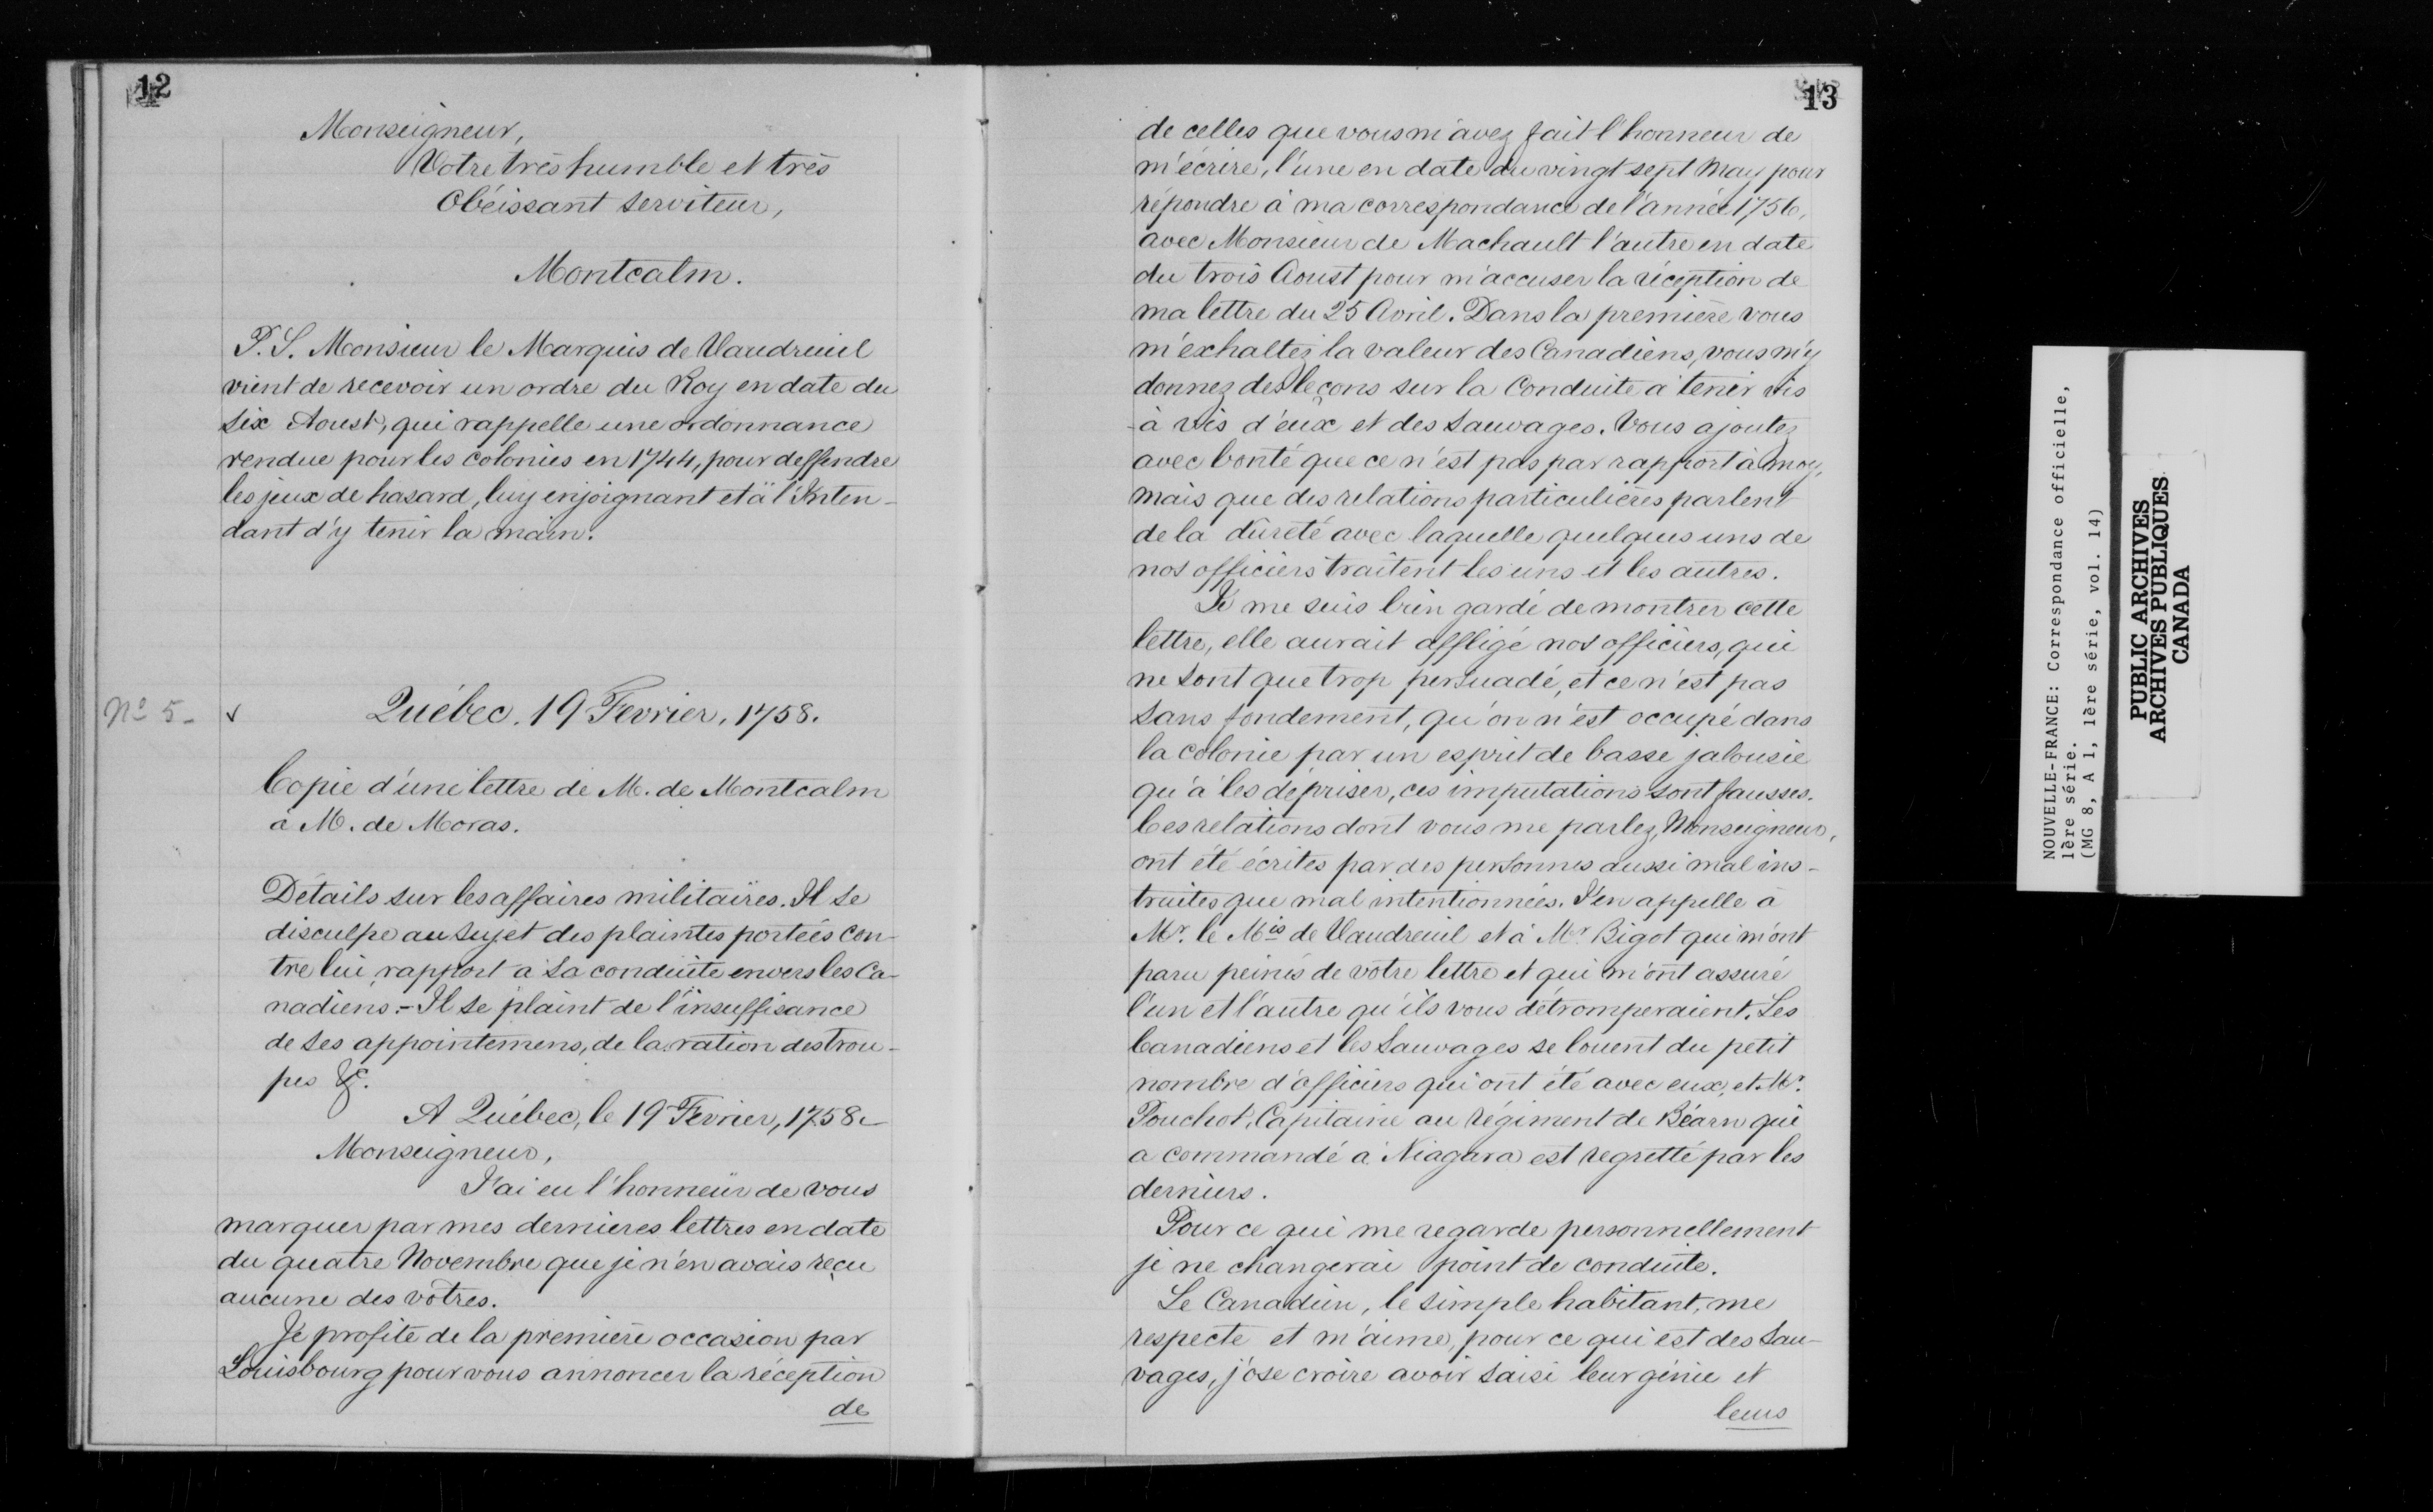 12
Monseigneur,
Votre très humble et très
Obéissant serviteur,
Montcalm.
P.S. Monsieur le Marquis de Vaudreuil
vient de recevoir un ordre du Roy en date du
six Aoust, qui rappelle une ordonnance
rendue pour les colonies en 1744, pour deffendre
les jeux de hasard, luy enjoignant et à l'Inten-
dant d'y tenir la main.
No 5-
Québec. 19 Fevrier. 1758.
Copie d'une lettre de M. de Montcalm
à M. de Moras.
Détails sur les affaires militaires. Il se
disculpe au sujet des plaintes portées con-
tre lui, rapport à sa conduite envers les Ca-
nadiens.- Il se plaint de l'insuffisance
de ses appointemens, de la ration des trou-
pes &c.
A Québec, le 19 Fevrier, 1758.
Monseigneur,
J'ai eu l'honneur de vous
marquer par mes dernieres lettres en date
du quatre Novembre que je n'en avais reçu
aucune des vôtres.
Je profite de la première occasion par
Louisbourg pour vous annoncer la réception
de
13
de celles que vous m'avez fait l'honneur de
m'écrire, l'une en date du vingt sept May pour
répondre à ma correspondance de l'année 1756,
avec Monsieur de Machault l'autre en date
du trois Aoust pour m'accuser la réception de
ma lettre du 25 Avril. Dans la première vous
m'exhaltez la valeur des Canadiens, vous m'y
donnez des leçons sur la Conduite à tenir vis
-à vis d'eux et des Sauvages. Vous ajoutez
avec bonté que ce n'est pas par rapport à moy,
mais que des relations particulières parlent
de la dureté avec laquelle quelques uns de
nos officiers traitent les uns et les autres.
Je me suis bien gardé de montrer cette
lettre, elle aurait affligé nos officiers, qui
ne sont que trop persuadé, et ce n'est pas
sans fondement, qu'on n'est occupé dans
la colonie par un esprit de basse jalousie
qu'à les dépriser, ces imputations sont fausses.
Les relations dont vous me parlez, Monseigneur,
ont été écrites par des personnes aussi mal ins-
truites que mal intentionnées. J'en appelle à
Mr. le Mis de Vaudreuil et à Mr Bigot qui m'ont
paru peinés de votre lettre et qui m'ont assuré
l'un et l'autre qu'ils vous détromperaient. Les
Canadiens et les Sauvages se louent du petit
nombre d'officiers qui ont été avec eux, et Mr.
Pouchot, Capitaine au régiment de Béarn qui
a commandé à Niagara est regretté par les
derniers.
Pour ce qui me regarde personnellement
je ne changerai point de conduite.
Le Canadien, le simple habitant, me
respecte et m'aime, pour ce qui est des Sau-
vages, j'ose croire avoir saisi leur génie et
leurs
NOUVELLE-FRANCE: Correspondance officielle,
1ère série.
(MG 8, A 1, 1ère série, vol. 14)
PUBLIC ARCHIVES
ARCHIVES PUBLIQUES
CANADA